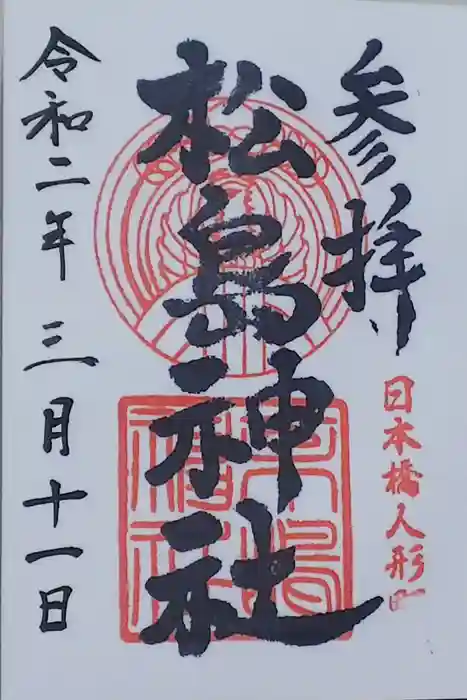 参拝
日本橋人形町
松島神社
令和二年三月十一日